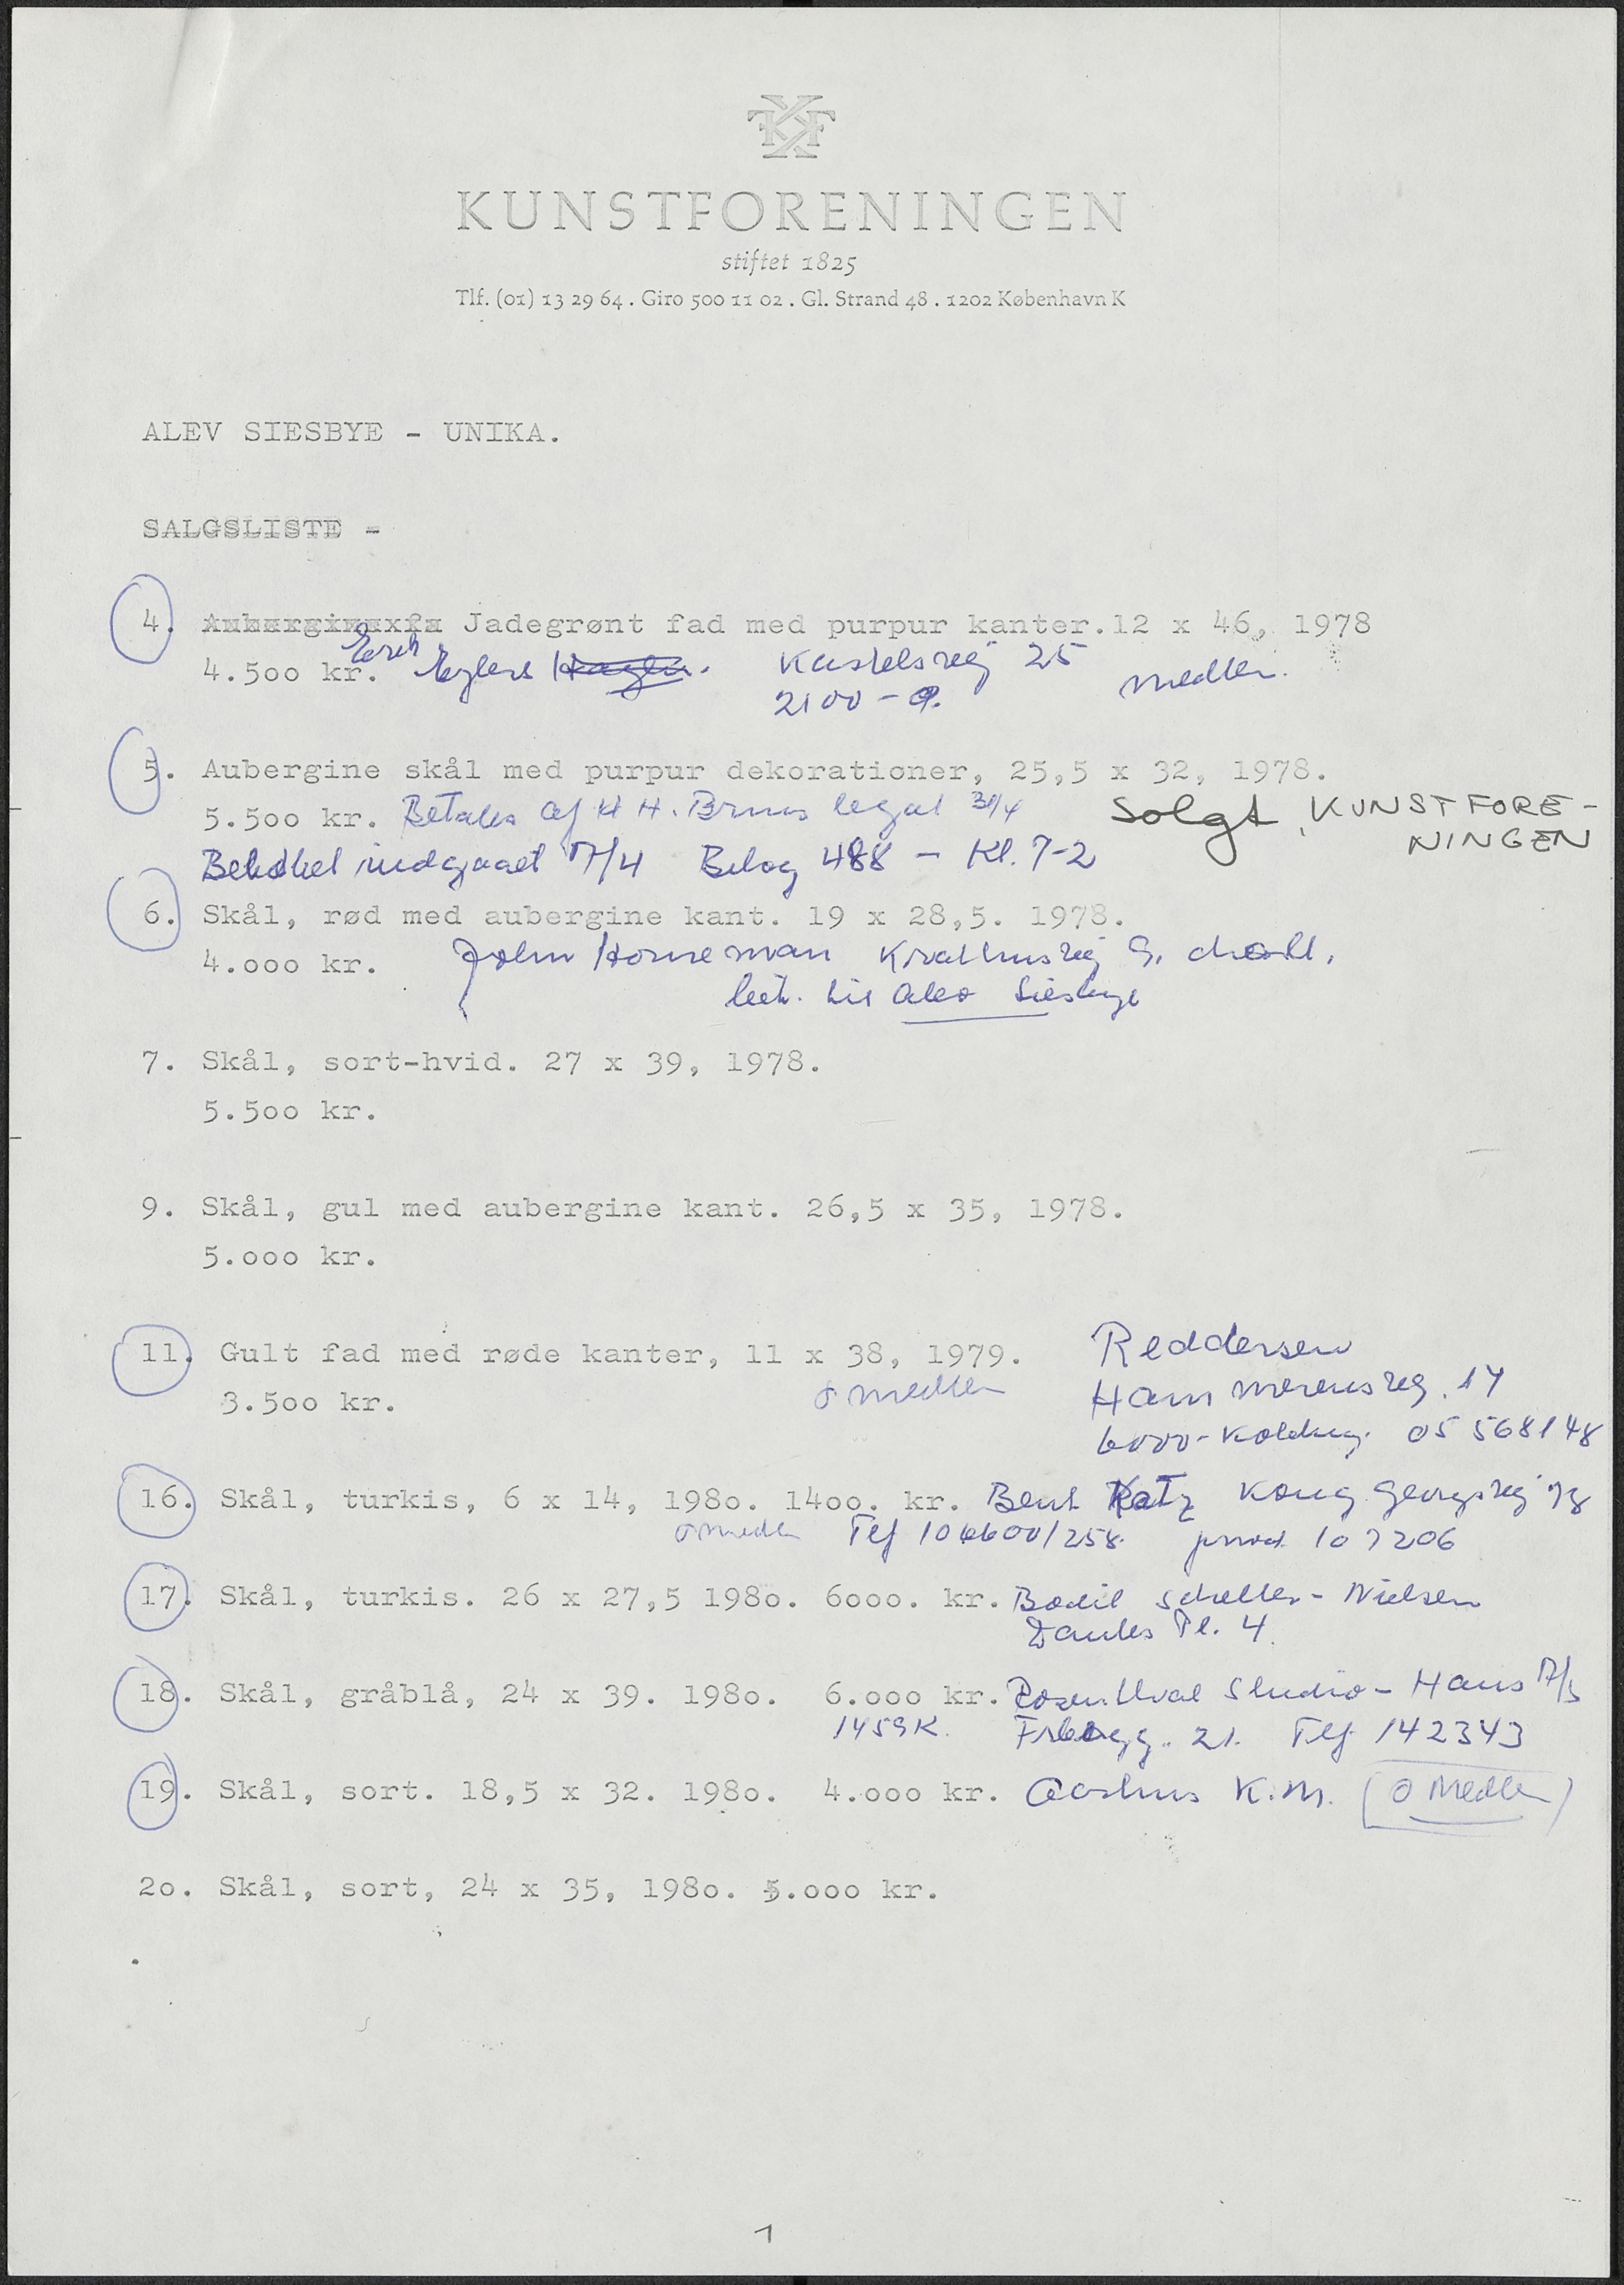 KUNSTFORENINGEN
stiftet 1825
Tlf. (01) 13 29 64 . Giro 500 11 02 . Gl. Strand 48 . 1202 København K
ALEV SIESBYE - UNIKA.
SALGSLISTE -
4. Jadegrønt fad med purpur kanter.12 x 46, 1978
4.500 kr. Kastelsvej 25 medlem.
2100 - Ø.
5. Aubergine skål med purpur dekorationer, 25,5 x 32, 1978.
5.500 kr. Betales af H. Bruns legat Solgt, KUNSTFORE-
NINGEN
indgaaet 17/4 Bilag 488 - Kl. 7-2
6. Skål, rød med aubergine kant. 19 x 28,5. 1978.
4.000 kr. John Horneman Krathusvej 9.
bet. til Alev Siesbye
7. Skål, sort-hvid. 27 x 39, 1978.
5.500 kr.
9. Skål, gul med aubergine kant. 26,5 x 35, 1978.
5.000 kr.
11. Gult fad med røde kanter, 11 x 38, 1979. Reddersen
3.500 kr. o medlem 14
6000 - Kolding. 05 568148
16. Skål, turkis, 6 x 14, 1980. 1400. kr. Bent Katz Kong Georgsvej
o medlem Tlf 106600/258. privat 107206
17. Skål, turkis. 26 x 27,5 1980. 6000. kr. Bodil - Nielsen
Pl. 4.
18. Skål, gråblå, 24 x 39. 1980. 6.000 kr. Rosenthal Studio - Haus
1459 K. Frbergg. 21. Tlf 142343
19. Skål, sort. 18,5 x 32. 1980. 4.000 kr. Aarhus K.M. (o Medlem)
20. Skål, sort, 24 x 35, 1980. 5.000 kr.
1